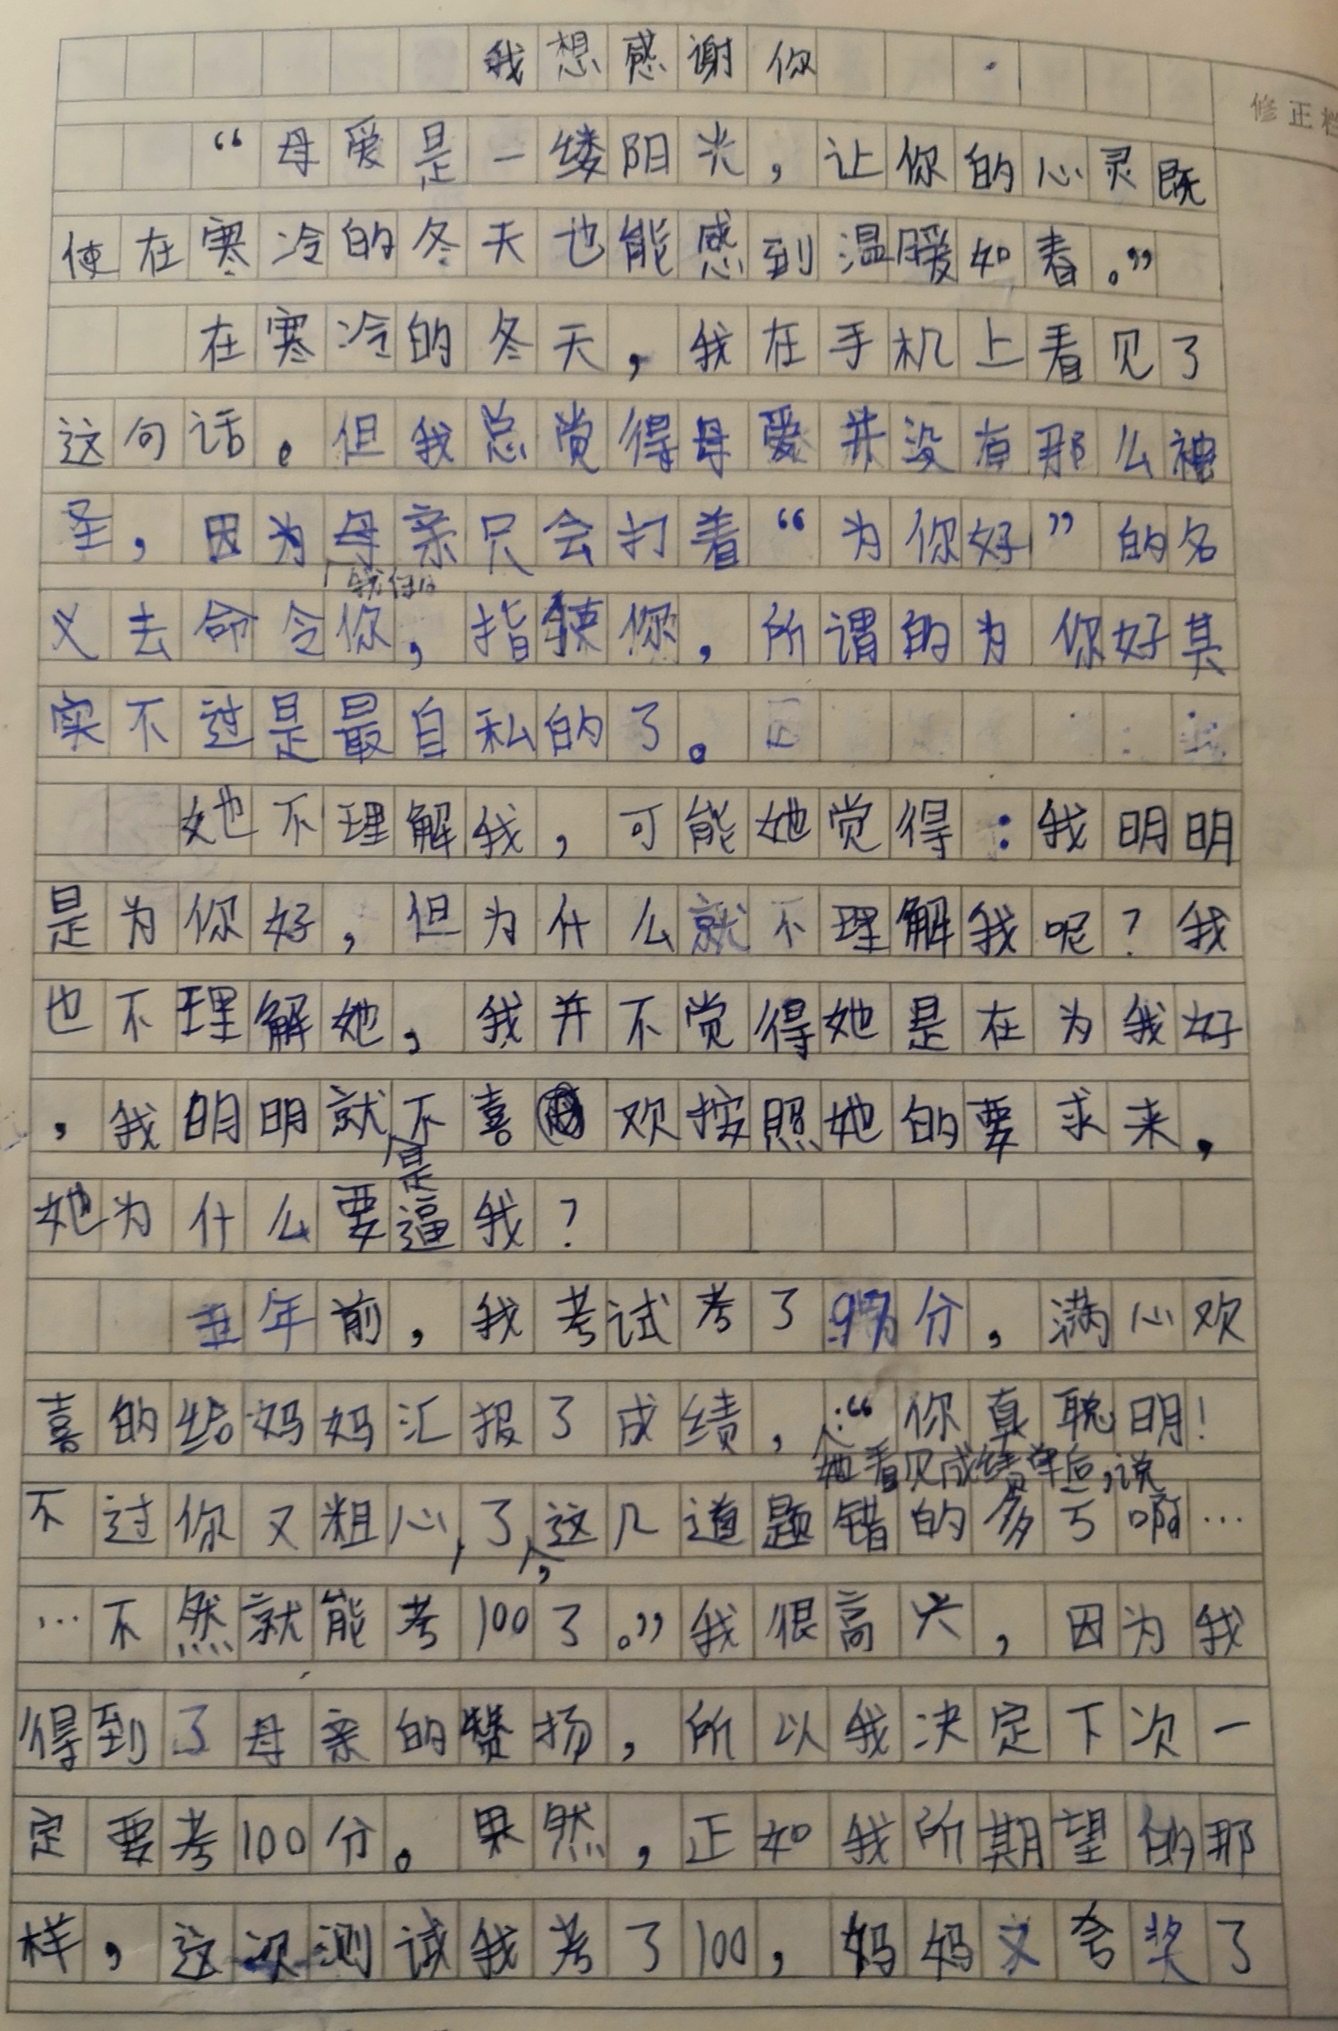 我想感谢你
修正栏
“母爱是一缕阳光，让你的心灵既
使在寒冷的冬天也能感到温暖如春。”
在寒冷的冬天，我在手机上看见了
这句话。但我总觉得母爱并没有那么神
圣，因为母亲只会打着“为你好”的名
义去命令你，指使你，所谓的为你好其
实不过是最自私的了。
她不理解我，可能她觉得：我明明
是为你好，但为什么就不理解我呢？我
也不理解她，我并不觉得她是在为我好
，我明明就不喜欢按照她的要求来，
是
她为什么要逼我？
年前，我考试考了97分，满心欢
喜的给妈妈汇报了成绩，：“你真聪明！
她看见成绩单后，说
不过你又粗心了，这几道题错的多亏啊…
…不然就能考100了。”我很高兴，因为我
得到了母亲的赞扬，所以我决定下次一
定要考100分。果然，正如我所期望的那
样，这次测试我考了100，妈妈又夸奖了